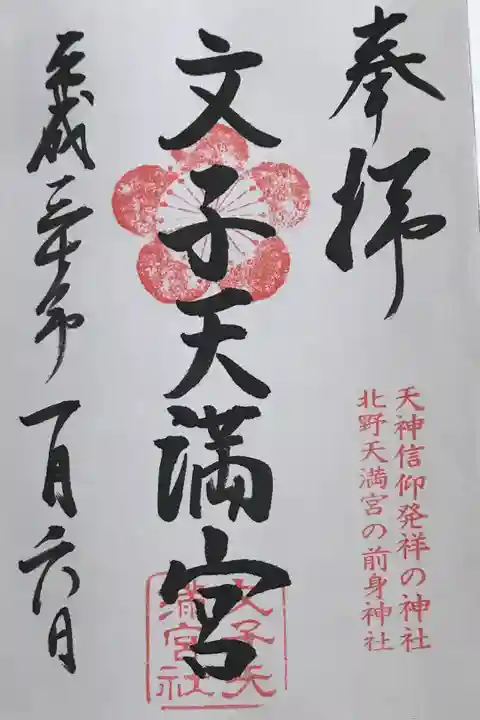 奉拝
天神信仰発祥の神社
北野天満宮の前身神社
文子天満宮
文子天
満宮社
平成三十年一月六日